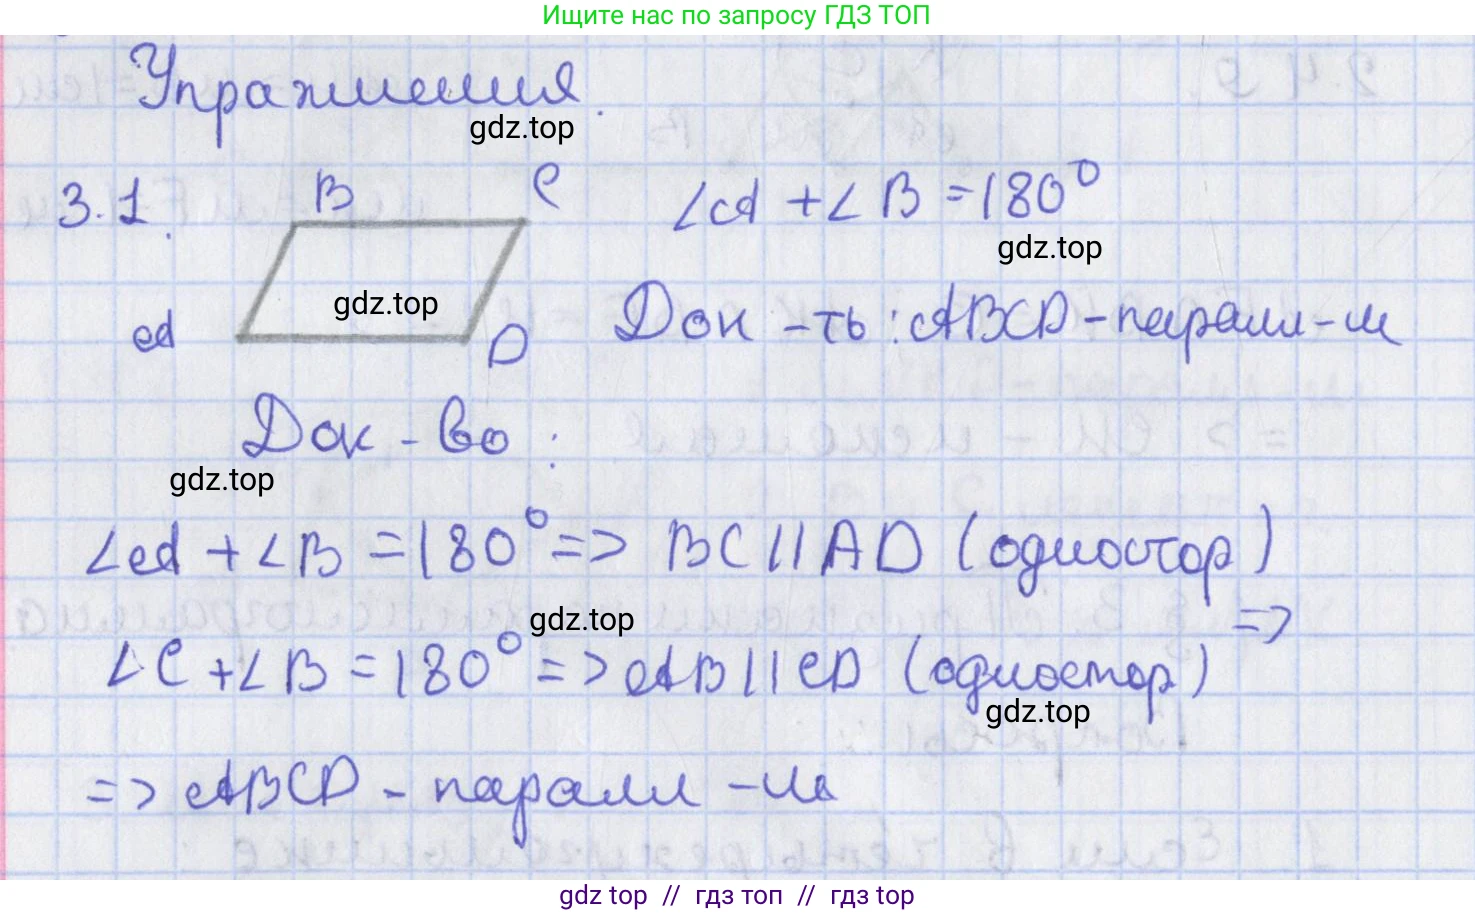 Ищите нас по запросу ГДЗ ТОП
Упражнения.
gdz.top
3.1.
B
C
∠A + ∠B = 180°
gdz.top
gdz.top
A
D
Док-ть: ABCD - паралл-м
Док-во:
gdz.top
∠A + ∠B = 180° => BC || AD (одностор)
gdz.top
=>
∠C + ∠B = 180° => AB || CD (одностор)
gdz.top
=> ABCD - паралл-м
gdz top // гдз топ // гдз top